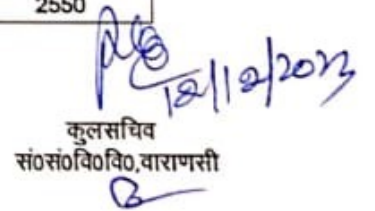 2550
12/12/2023
कुलसचिव
सं0सं0वि0वि0,वाराणसी